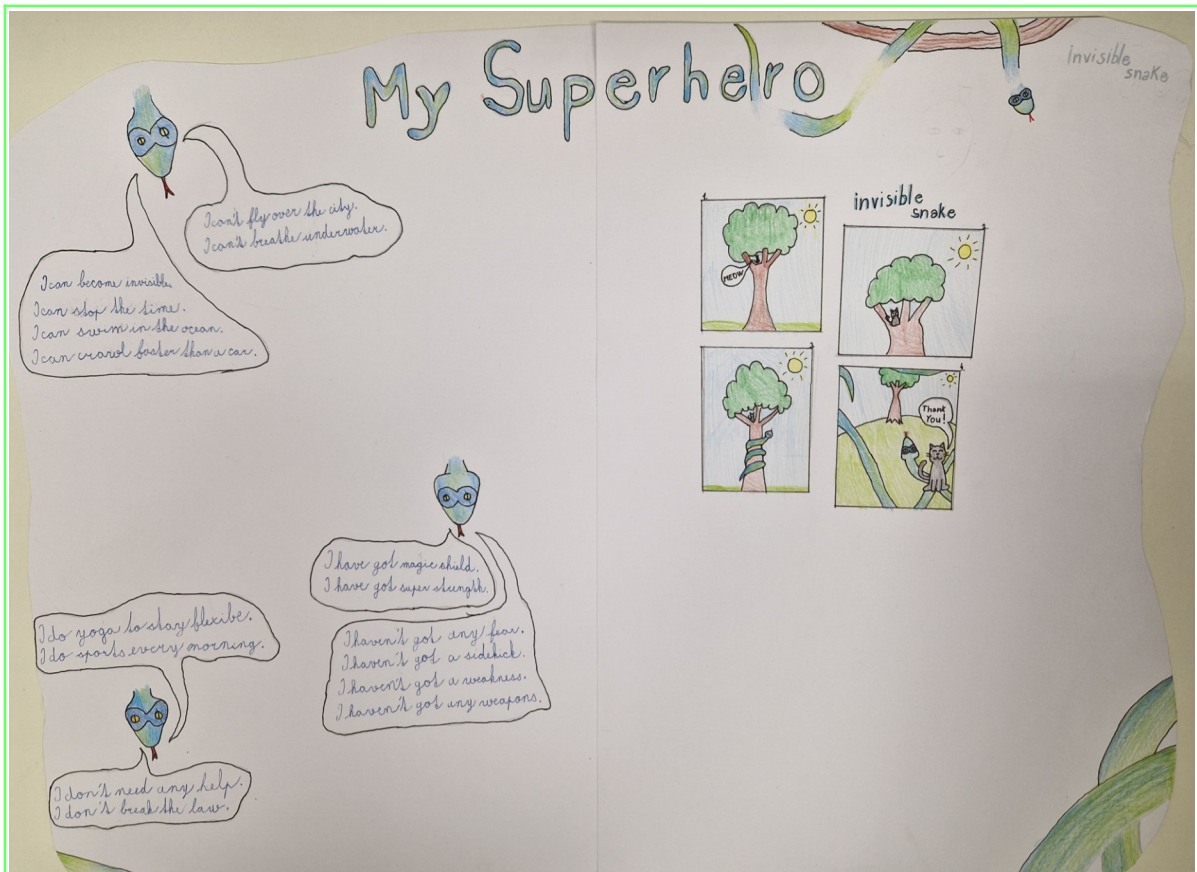 My Superhero
invisible
snake
I can't fly over the city.
I can't breathe underwater.
I can become invisible.
I can stop the time.
I can swim in the ocean.
I can crawl faster than a car.
invisible
snake
1
MEOW
2
3
4
Thank
You!
I have got magic shield.
I have got super strength.
I haven't got any fear.
I haven't got a sidekick.
I haven't got a weakness.
I haven't got any weapons.
I do yoga to stay flexibe.
I do sports every morning.
I don't need any help.
I don't break the law.